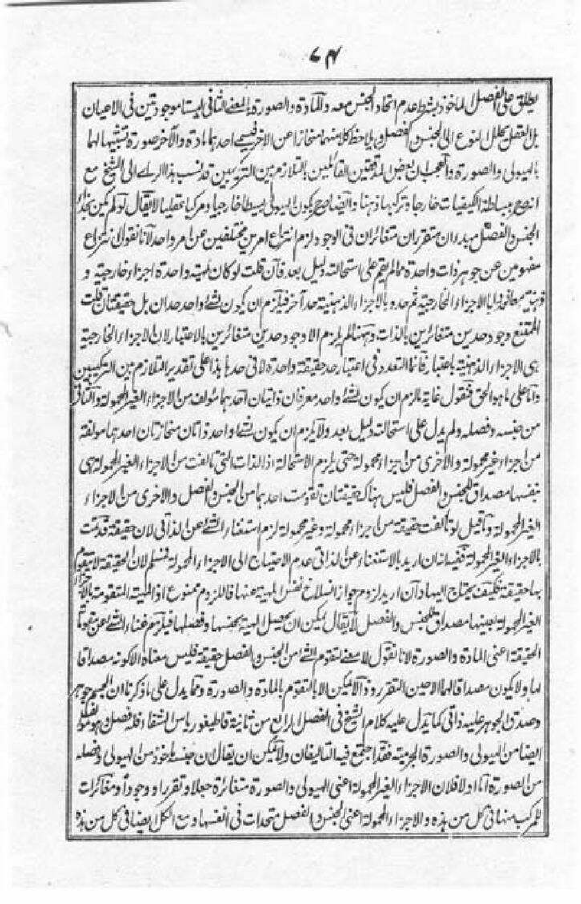 ٧٤
يطلق على الفصل الماخوذ بشرط عدم اتحاد الجنس معه والمادة والصورة بالمعنى الثاني ليستا موجودتين فى الاعيان
بل العقل يحلل النوع الى الجنس والفصل ويلاحظ كلا منهما منحازا عن الآخر فيسمى احدهما مادة والآخر صورة تشبيها لهما
بالهيولى والصورة والعجب ان بعض المدققين القائلين بالتلازم بين التركيبين قد نسب هذا الراى الى الشيخ مع
انه صرح ببساطة الكيفيات خارجا وتركبها ذهنا وايضا صرح بكون الهيولى بسيطا خارجيا ومركبا عقليا لا يقال لو لم يكن بحذاء
الجنس والفصل مبدءان متقرران متغائران فى الوجود لزم انتزاع امرين مختلفين عن امر واحد لانا نقول انتزاع
مفهومين عن جوهر ذات واحدة مما لم يقم على استحالته دليل بعد فان قلت لو كان لمهية واحدة اجزاء خارجية و
ذهنية معا فهذا بالاجزاء الخارجية ثم حده بالاجزاء الذهنية حد آخر فيلزم ان يكون لشئ واحد حدان بل حقيقتان قلت
الممتنع وجود حدين متغائرين بالذات وههنا لم يلزم الا وجود حدين متغائرين بالاعتبار لان الاجزاء الخارجية
هى الاجزاء الذهنية باعتبار فانما التعدد فى اعتبار حد حقيقة واحدة لا فى حدها هذا على تقدير التلازم بين التركيبين
واما على ما هو الحق فنقول غاية ما لزم ان يكون لشئ واحد معرفان ذاتيان احدهما مؤلف من الاجزاء الغير المحمولة والثانى
من جنسه وفصله ولم يدل على استحالته دليل بعد ولا يلزم ان يكون لشئ واحد ذاتان منحازتان احدهما مؤلفة
من اجزاء غير محمولة والاخرى من اجزاء محمولة حتى يلزم الاستحالة اذ الذات التى تالفت من الاجزاء الغير المحمولة هى
بنفسها مصداق للجنس والفصل فليس هناك حقيقتان تقومت احدهما من الجنس والفصل والاخرى من الاجزاء
الغير المحمولة وما قيل لو تالفت حقيقة من اجزاء محمولة وغير محمولة لزم استغناء الشئ عن الذاتى لان حقيقة قد تمت
بالاجزاء الغير المحمولة ففيه ان اريد بالاستغناء عن الذاتى عدم الاحتياج الى الاجزاء المحمولة فمسلم لان الحقيقة لا تتقوم
بها حقيقة فكيف يحتاج اليها وان اريد لزوم جواز انسلاخ نفس المهية عنها فاللزوم ممنوع اذ المهية المتقومة بالاجزاء
الغير المحمولة بعينها مصداق للجنس والفصل لا يقال يمكن ان يحصل المهية بجنسها وفصلها فيلزم غناء الشئ عن مقوماته
الحقيقة اعنى المادة والصورة لانا نقول لا معنى لتقوم الشئ من الجنس والفصل حقيقة فليس معناه الا كونه مصداقا
لهما ولا يكون مصداقا لهما الا حين التقرر وذا لا يمكن الا بالتقوم بالمادة والصورة ومما يدل على ما ذكرنا ان الجسم جوهر
وصدق الجوهر عليه ذاتى كما يدل عليه كلام الشيخ فى الفصل الرابع من ثانية قاطيغورياس الشفاء فله فصل وهو مؤلف
ايضا من الهيولى والصورة الجرمية فقد اجتمع فيه التاليفان ولا يمكن ان يقال ان جنسه ماخوذ من الهيولى وفصله
من الصورة اما اولا فلان الاجزاء الغير المحمولة اعنى الهيولى والصورة متغائرة جعلا وتقررا ووجودا ومغائرات
للمركب منها فى كل من هذه والاجزاء المحمولة اعنى الجنس والفصل متحدات فى انفسها ومع الكل ايضا فى كل من هذه